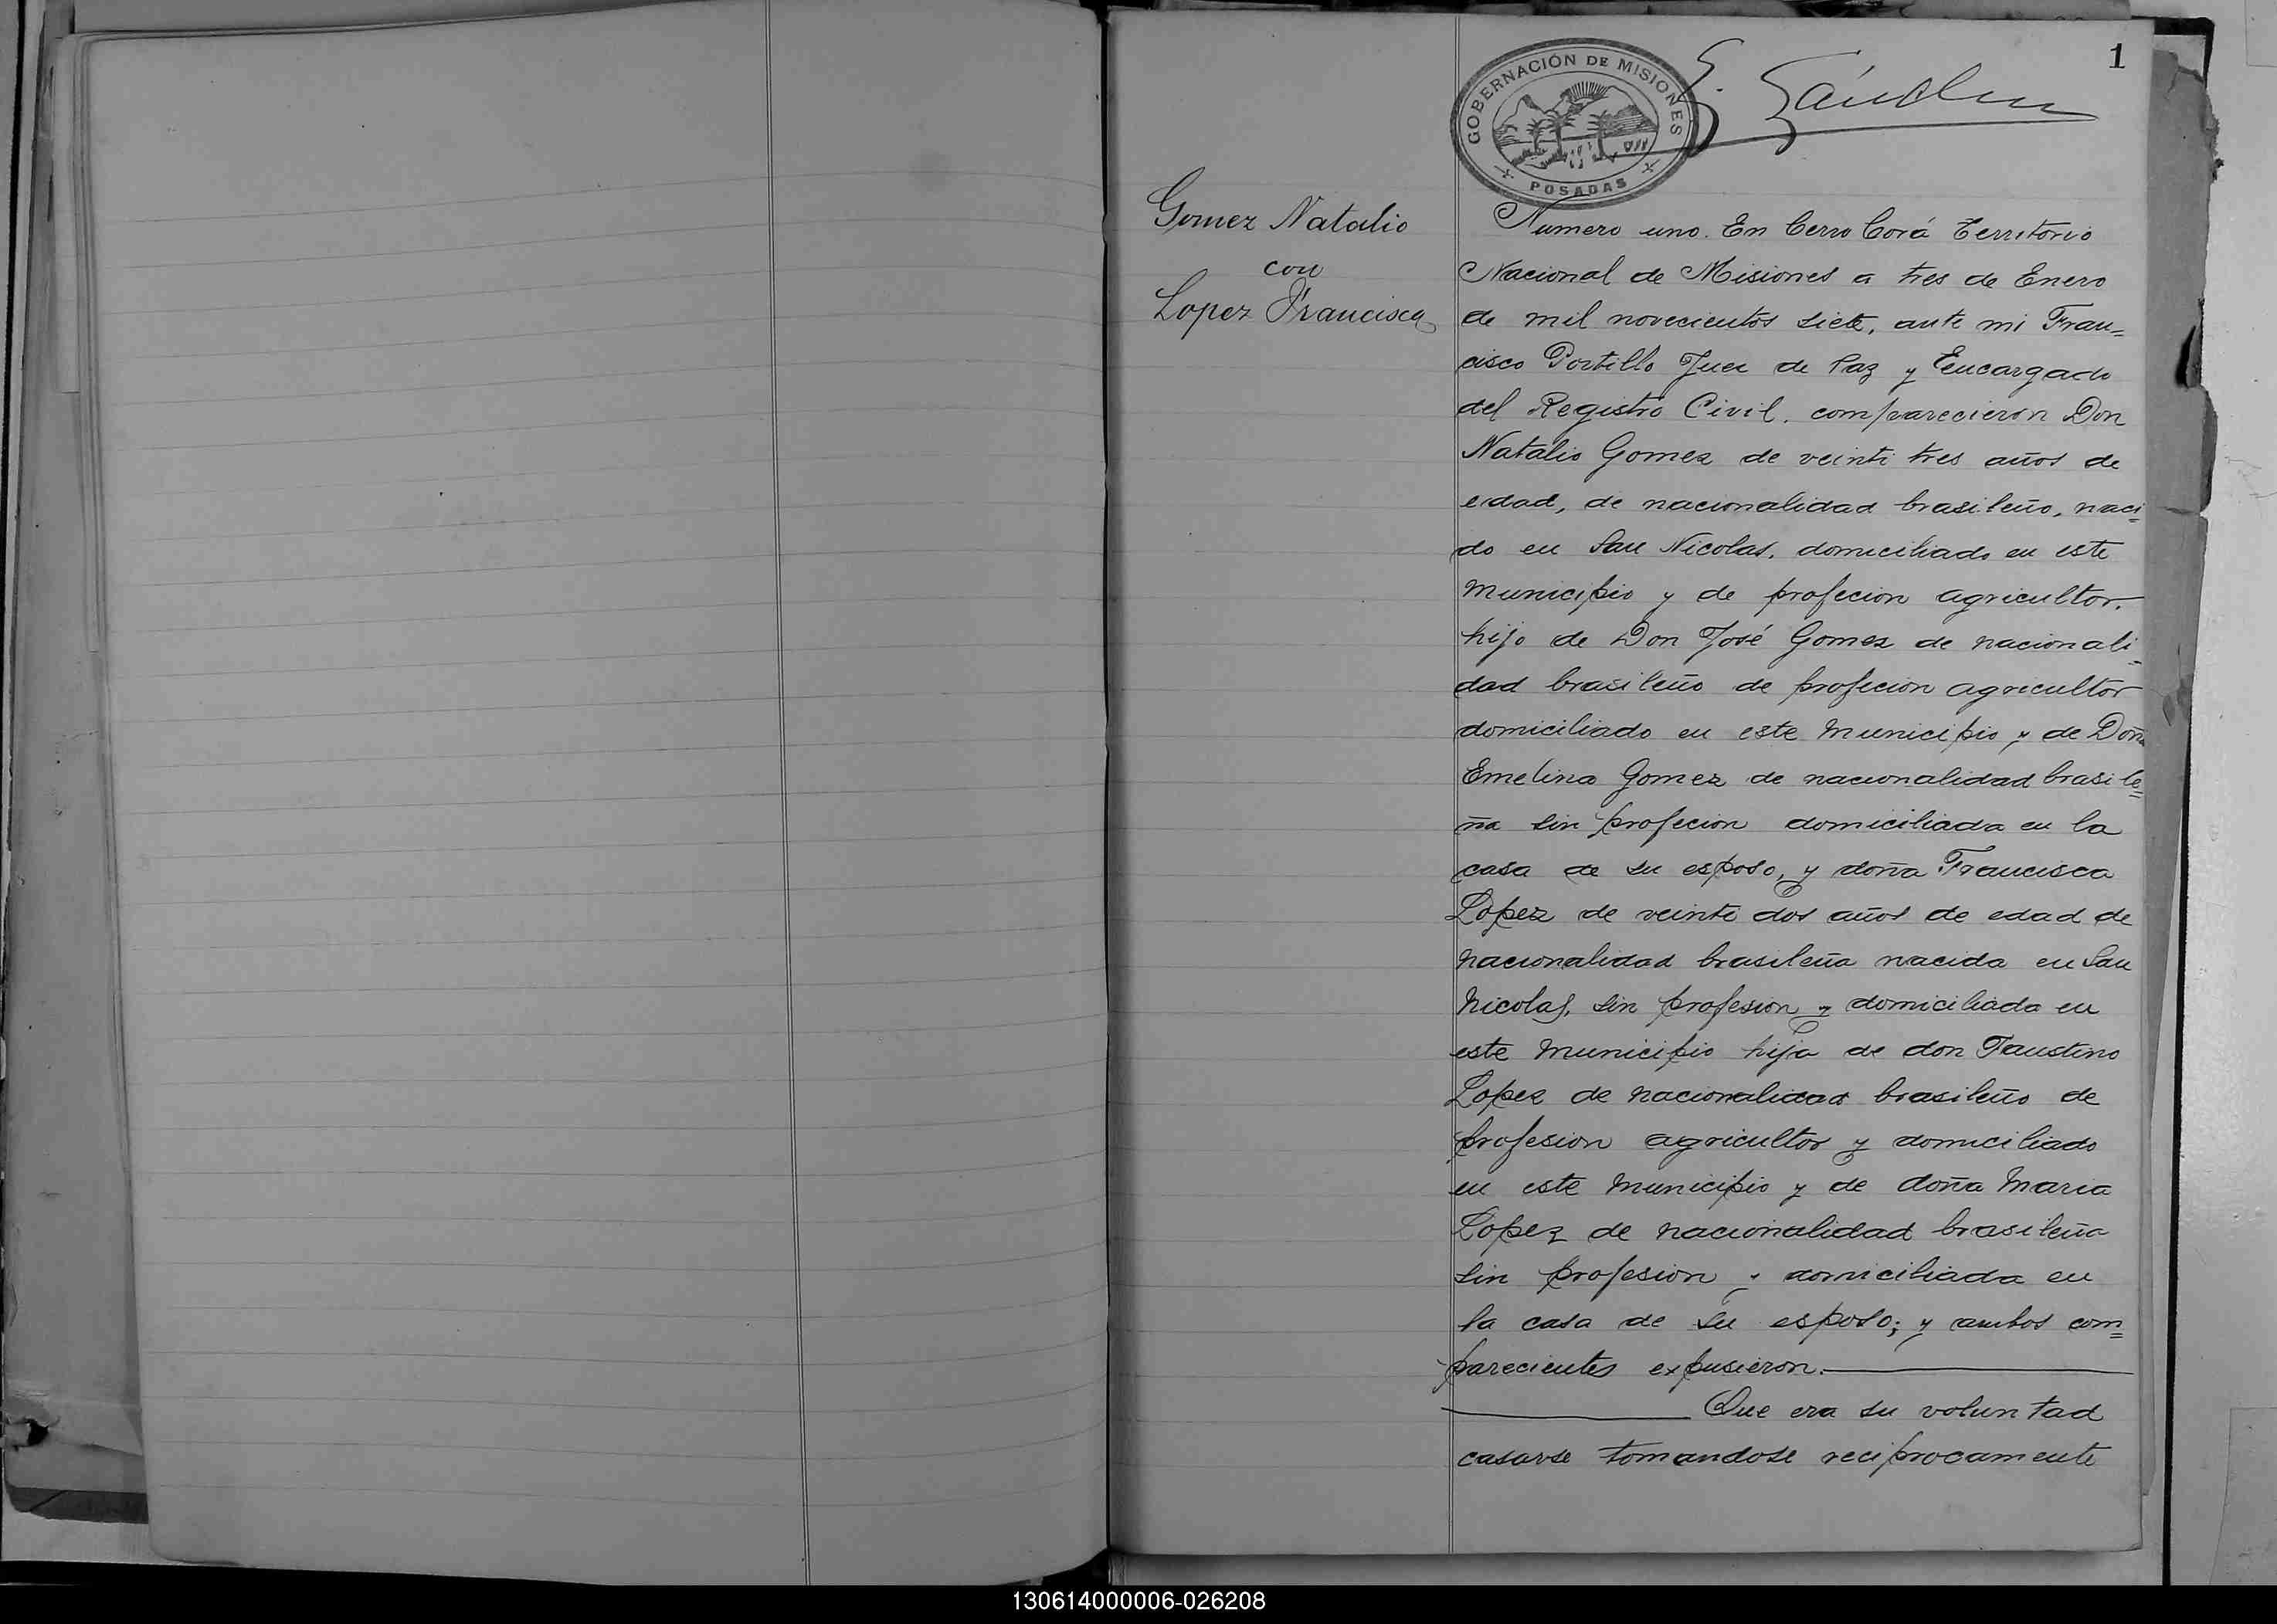 1
GOBERNACIÓN DE MISIONES
POSADAS
Gomez Natalio
con
Lopez Francisca
Numero uno. En Cerro Corá Territorio
Nacional de Misiones a tres de Enero
de mil novecientos siete, ante mi Fran=
cisco Portillo Juez de Paz y Encargado
del Registro Civil. comparecieron Don
Natalio Gomez de veinti tres años de
edad, de nacionalidad brasileño, naci=
do en San Nicolas, domiciliado en este
Municipio y de profecion agricultor.
hijo de Don José Gomez de nacionali=
dad brasileño de profecion agricultor
domiciliado en este Municipio y de Doña
Emelina Gomez de nacionalidad brasile=
ña sin profecion domiciliada en la
casa de su esposo, y doña Francisca
Lopez de veinte dos años de edad de
nacionalidad brasileña nacida en San
Nicolas, sin profesion y domiciliada en
este Municipio hija de don Faustino
Lopez de nacionalidad brasileño de
profesion agricultor y domiciliado
en este Municipio y de doña Maria
Lopez de nacionalidad brasileña
sin profesion y domiciliada en
la casa de su esposo; y ambos com=
parecientes expusieron.
Que era su voluntad
casarse tomandose reciprocamente
130614000006-026208